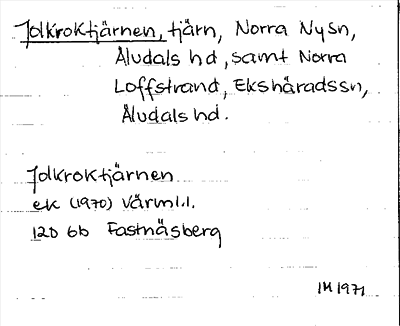 Jolkroktjärnen, tjärn, Norra Nysn,
Äludals hd, samt Norra
Loffstrand, Ekshäradssn,
Äludals hd.
Jolkroktjärnen
ek (1970) Värml.l.
12D 6b Fastnäsberg
IH 1971